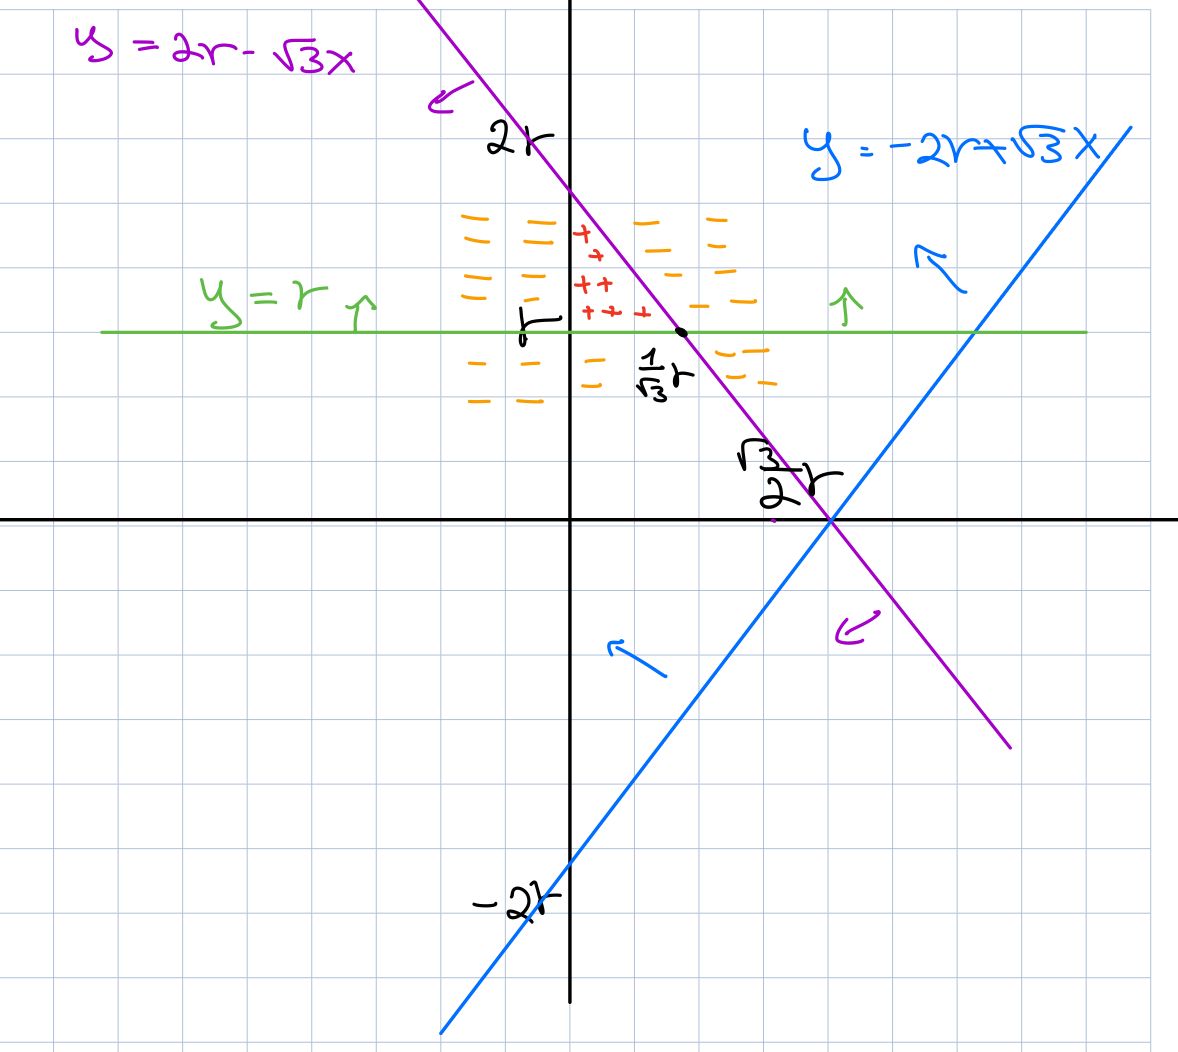 y = 2r - √3x
2r
y = -2r+√3x
y = r
r
1/√3 r
√3/2 r
-2r